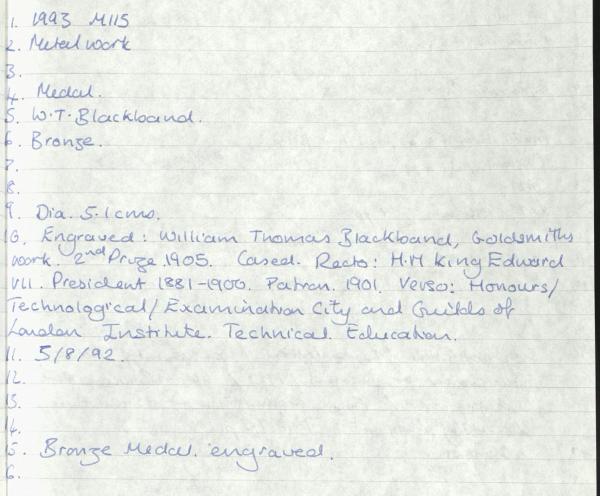 1. 1993 M115
2. Metalwork
3.
4. Medal.
5. W.T. Blackband.
6. Bronze.
7.
8.
9. Dia. 5.1cms.
10. Engraved: William Thomas Blackband, Goldsmiths
work. 2nd Prize 1905. Cased. Recto: H.M King Edward
VII. President 1881-1900. Patron. 1901. Verso: Honours/
Technological/Examination City and Guilds of
London Institute. Technical Education.
11. 5/8/92.
12.
13.
14.
5. Bronze Medal. engraved.
6.